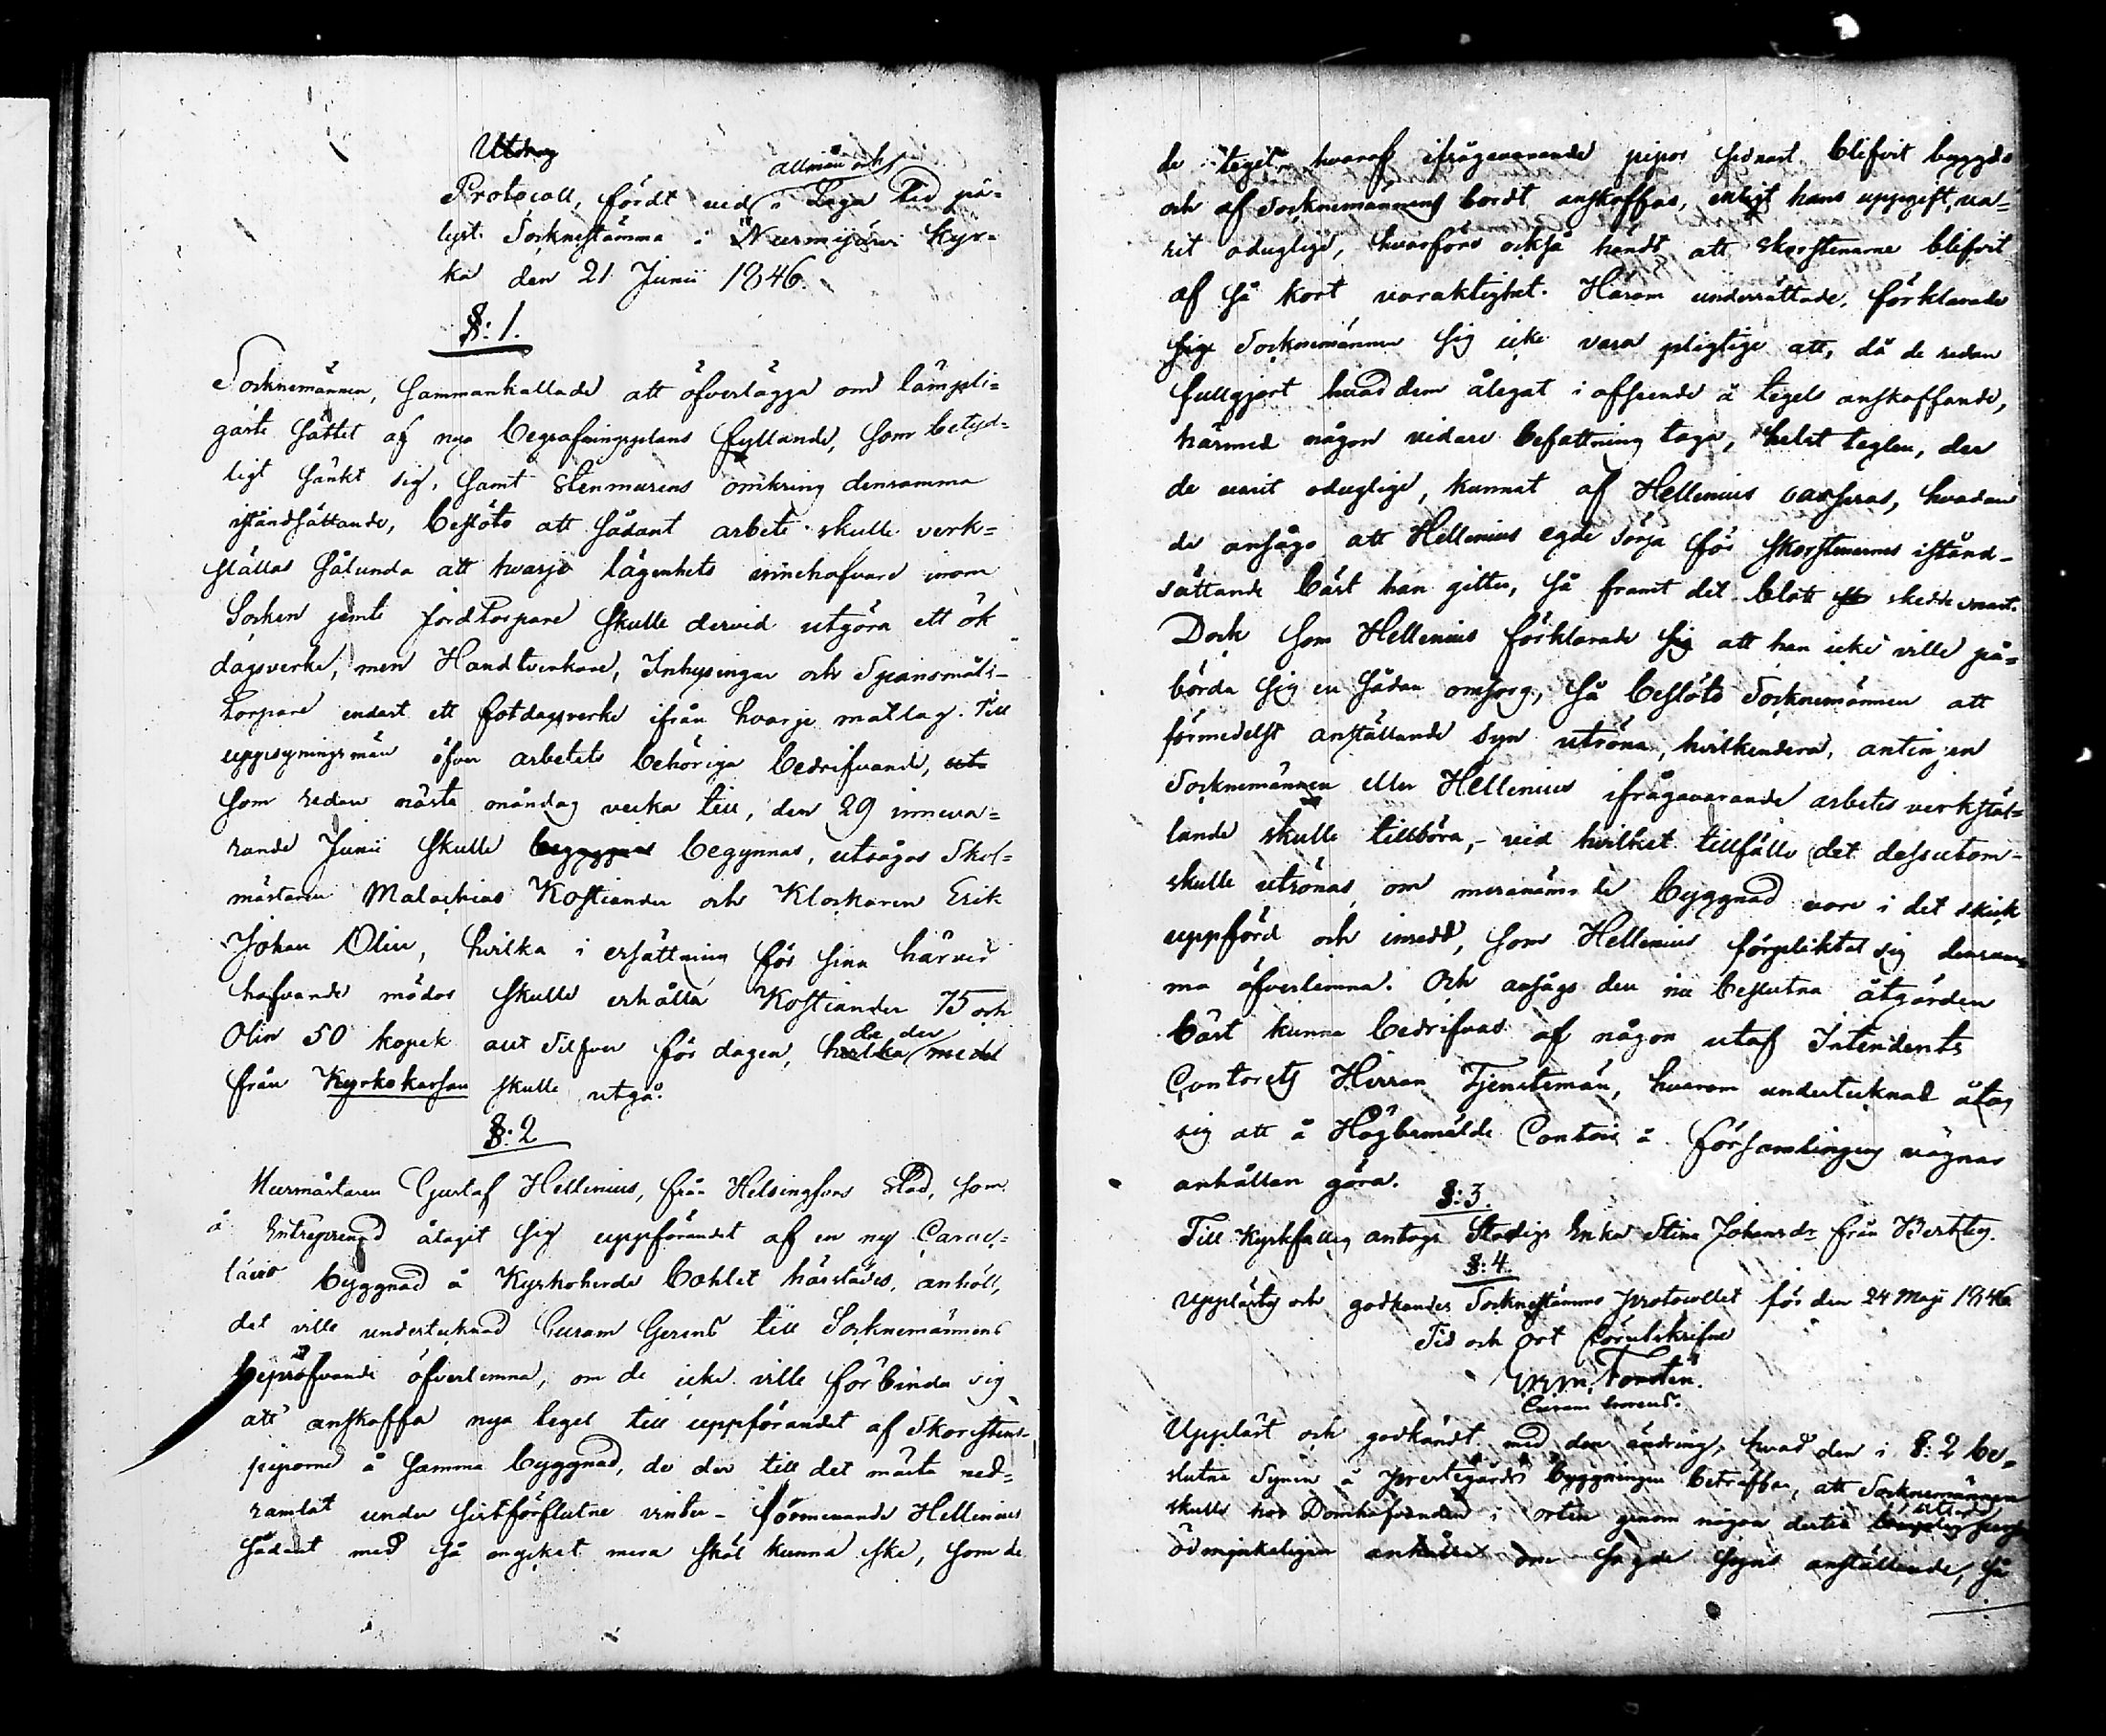 Utdrag
allmän och
Protocoll, fördt vid i Laga tid på-
lyst Socknestämma i Nurmijärvi Kyr-
ka den 21 Junii 1846.
§: 1.
Socknemännen, sammankallade att öfverlägga om lämpli-
gaste sättet af nya begrafningsplans fyllande, som betyd-
ligt sänkt sig, samt Stenmurens omkring densamma
iståndsättande, beslöto att sådant arbete skulle verk-
ställas sålunda att hvarje lägenhets innehafvare inom
Socken jemte jordtorpare skulle dervid utgöra ett ök
dagsverke, men Handtverkare, Inhysingar och Spanmåls-
torpare endast ett fotdagsverke ifrån hvarje matlag. Till
uppsyningsmän öfver arbetets behöriga bedrifvande, ut
som redan nästa måndag vecka till, den 29 inneva-
rande Junii skulle begynnas begynnas, utsågos Skol-
mästaren Malachias Kostiander och Klockaren Erik
Johan Olin, hvilka i ersättning för sina härvid
hafvande mödor skulle erhålla Kostiander 75 och
Olin 50 kopek au Silfver för dagen, hvilka da der medel
från Kyrkokassan skulle utgå.
§: 2
Murmästaren Gustaf Hellenius, från Helsingfors Stad, som
å Entreprenad åtagit sig uppförandet af en ny Carac-
tärs byggnad å Kyrkoherde bohlet härstädes, anhöll,
det ville undertecknad Curam Gerens till Socknemännens
bepröfvande öfverlemna, om de icke ville förbinda sig
att anskaffa nya tegel till uppförandet af Skorstens-
piporne å samma byggnad, de der till det mästa ned-
ramlat under sistförflutne vinter - förmenande Hellenius
sådant med så mycket mera skäl kunna ske, som de
de tegel, hvaraf ifrågavarande pipor sednast blifvit byggde
och af Socknemännens bordt anskaffas, enligt hans uppgift, va-
rit oduglige, hvarföre också händt att skorstenarne blifvit
af så kort varaktighet. Härom underrättade, förklarade
sig Socknemännen sig icke vara pligtige att, då de redan
fullgjort hvad dem ålegat i afseende å tegels anskaffande,
härmed någon vidare befattning taga, helst teglen, der
de varit oduglige, kunnat af Hellenius casseras, hvadan
de ansågo att Hellenius egde sörja för skorstenarnes istånd-
sättande bäst han gitter, så framt det blott skedde snart.
Dock som Hellenius förklarade sig att han icke ville på-
börda sig en sådan omsorg, så beslöto Socknemännen att
förmedelst anställande syn utröna, hvilkendera, antingen
Socknemännen eller Hellenius ifrågavarande arbetes verkstäl-
lande skulle tillhöra, - vid hvilket tillfälle det dessutom
skulle utrönas, om meranämnde byggnad vore i det skick
uppförd och inredd, som Hellenius förpliktat sig densam-
ma öfverlemna. Och ansågs den nu beslutna åtgärden
bäst kunna bedrifvas af någon utaf Intendents
Contorets Herrar Tjenstemän, hvarom undertecknad åtog
sig att å Högbemälde Contoir å församlingens vägnar
anhållan göra.
§: 3.
Till Kyrkfattig antogs Stadigs Enka Stina Johansdr från Bertby.
§: 4.
Upplästes och godkändes Sockneståmms protocollet för den 24 Maji 1846.
Tid och Ort förutskrifne
Forstén.
Curam Gerens.
Uppläst och godkändt med den ändring, hvad den i §: 2 be-
slutna Synen å prestegårds byggningen beträffar, att Socknemännen
skulle hos Domhafvanden i orten genom någon dertill utsedd
ödmjukeligen anhålla om sagde syns anställande, så